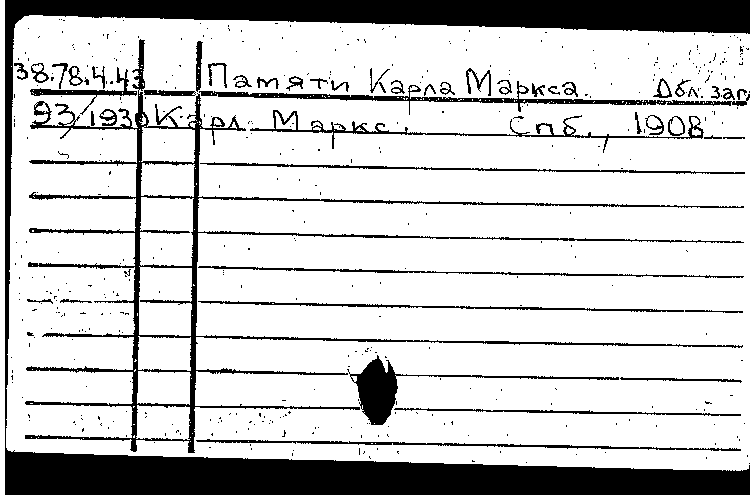 38.78.4.43 Памяти Карла Маркса. Дбл. заг
93/1930 Карл Маркс. Спб., 1908